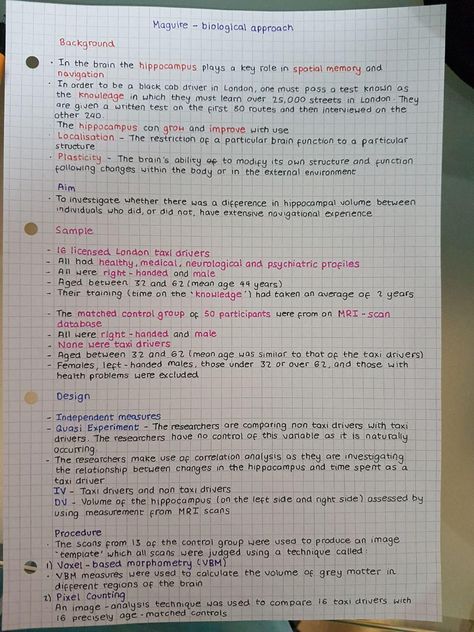 Maguire - biological approach
Background
· In the brain the hippocampus plays a key role in spatial memory and
navigation
· In order to be a black cab driver in London, one must pass a test known as
the knowledge in which they must learn over 25,000 streets in London. They
are given a written test on the first 80 routes and then interviewed on the
other 240.
The hippocampus can grow and improve with use
· Localisation - The restriction of a particular brain function to a particular
structure
· Plasticity - The brain's ability of to modify its own structure and function
following changes within the body or in the external environment
Aim
· To investigate whether there was a difference in hippocampal volume between
individuals who did, or did not, have extensive navigational experience
Sample
- 16 licensed London taxi drivers
- All had healthy, medical, neurological and psychiatric profiles
- All were right-handed and male
- Aged between 32 and 62 (mean age 44 years)
- Their training (time on the 'knowledge') had taken an average of 2 years
- The matched control group of 50 participants were from an MRI-scan
database
- All were right-handed and male
- None were taxi drivers
- Aged between 32 and 62 (mean age was similar to that of the taxi drivers)
- Females, left-handed males, those under 32 or over 62, and those with
health problems were excluded
Design
- Independent measures
- Quasi Experiment - The researchers are comparing non taxi drivers with taxi
drivers. The researchers have no control of this variable as it is naturally
occurring.
- The researchers make use of correlation analysis as they are investigating
the relationship between changes in the hippocampus and time spent as a
taxi driver
IV - Taxi drivers and non taxi drivers
DV - Volume of the hippocampus (on the left side and right side) assessed by
using measurement from MRI scans
Procedure
· The scans from 13 of the control group were used to produce an image
'template' which all scans were judged using a technique called:
1) Voxel-based morphometry (VBM)
· VBM measures were used to calculate the volume of grey matter in
different regions of the brain
2) Pixel Counting
An image-analysis technique was used to compare 16 taxi drivers with
16 precisely age-matched controls